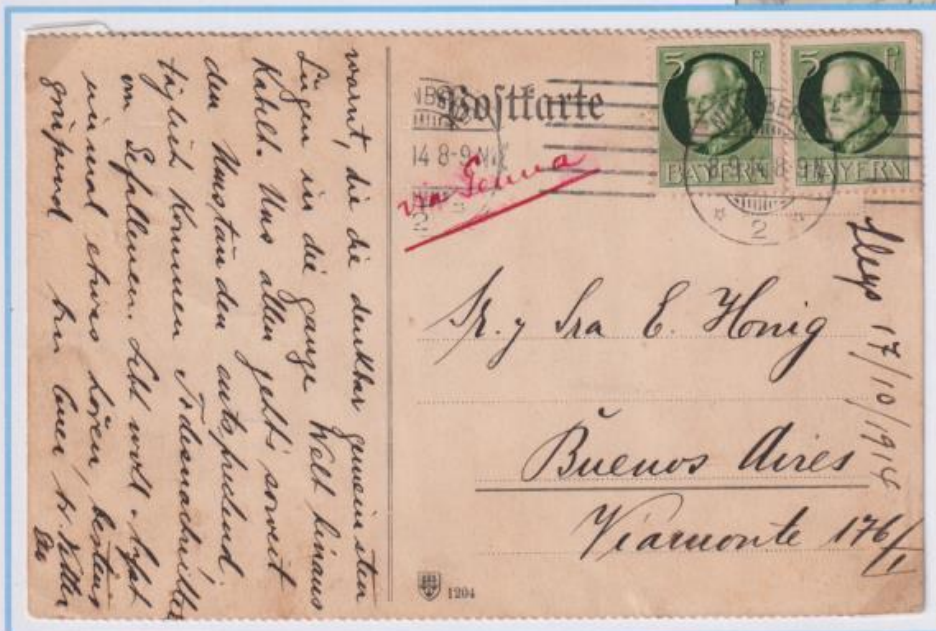 warnt, die die denkbar gemeinsten
Lügen in die ganze Welt hinaus
Kabelt. Uns allen geht's soweit
den Umständen entsprechend.
täglich kommen Todesnachrichten
von Gefallenen. Lebt wohl, laßt
einmal etwas hören, bestens
grüßend Ihr
Postkarte
via Genua
14 8-9 N
2
5 Pf
BAYERN
5 Pf
BAYERN
8-9 N
2
Sr. y Sra E. Honig
Buenos Aires
Viamonte 176/I
Llegó 17/10/1914
1204